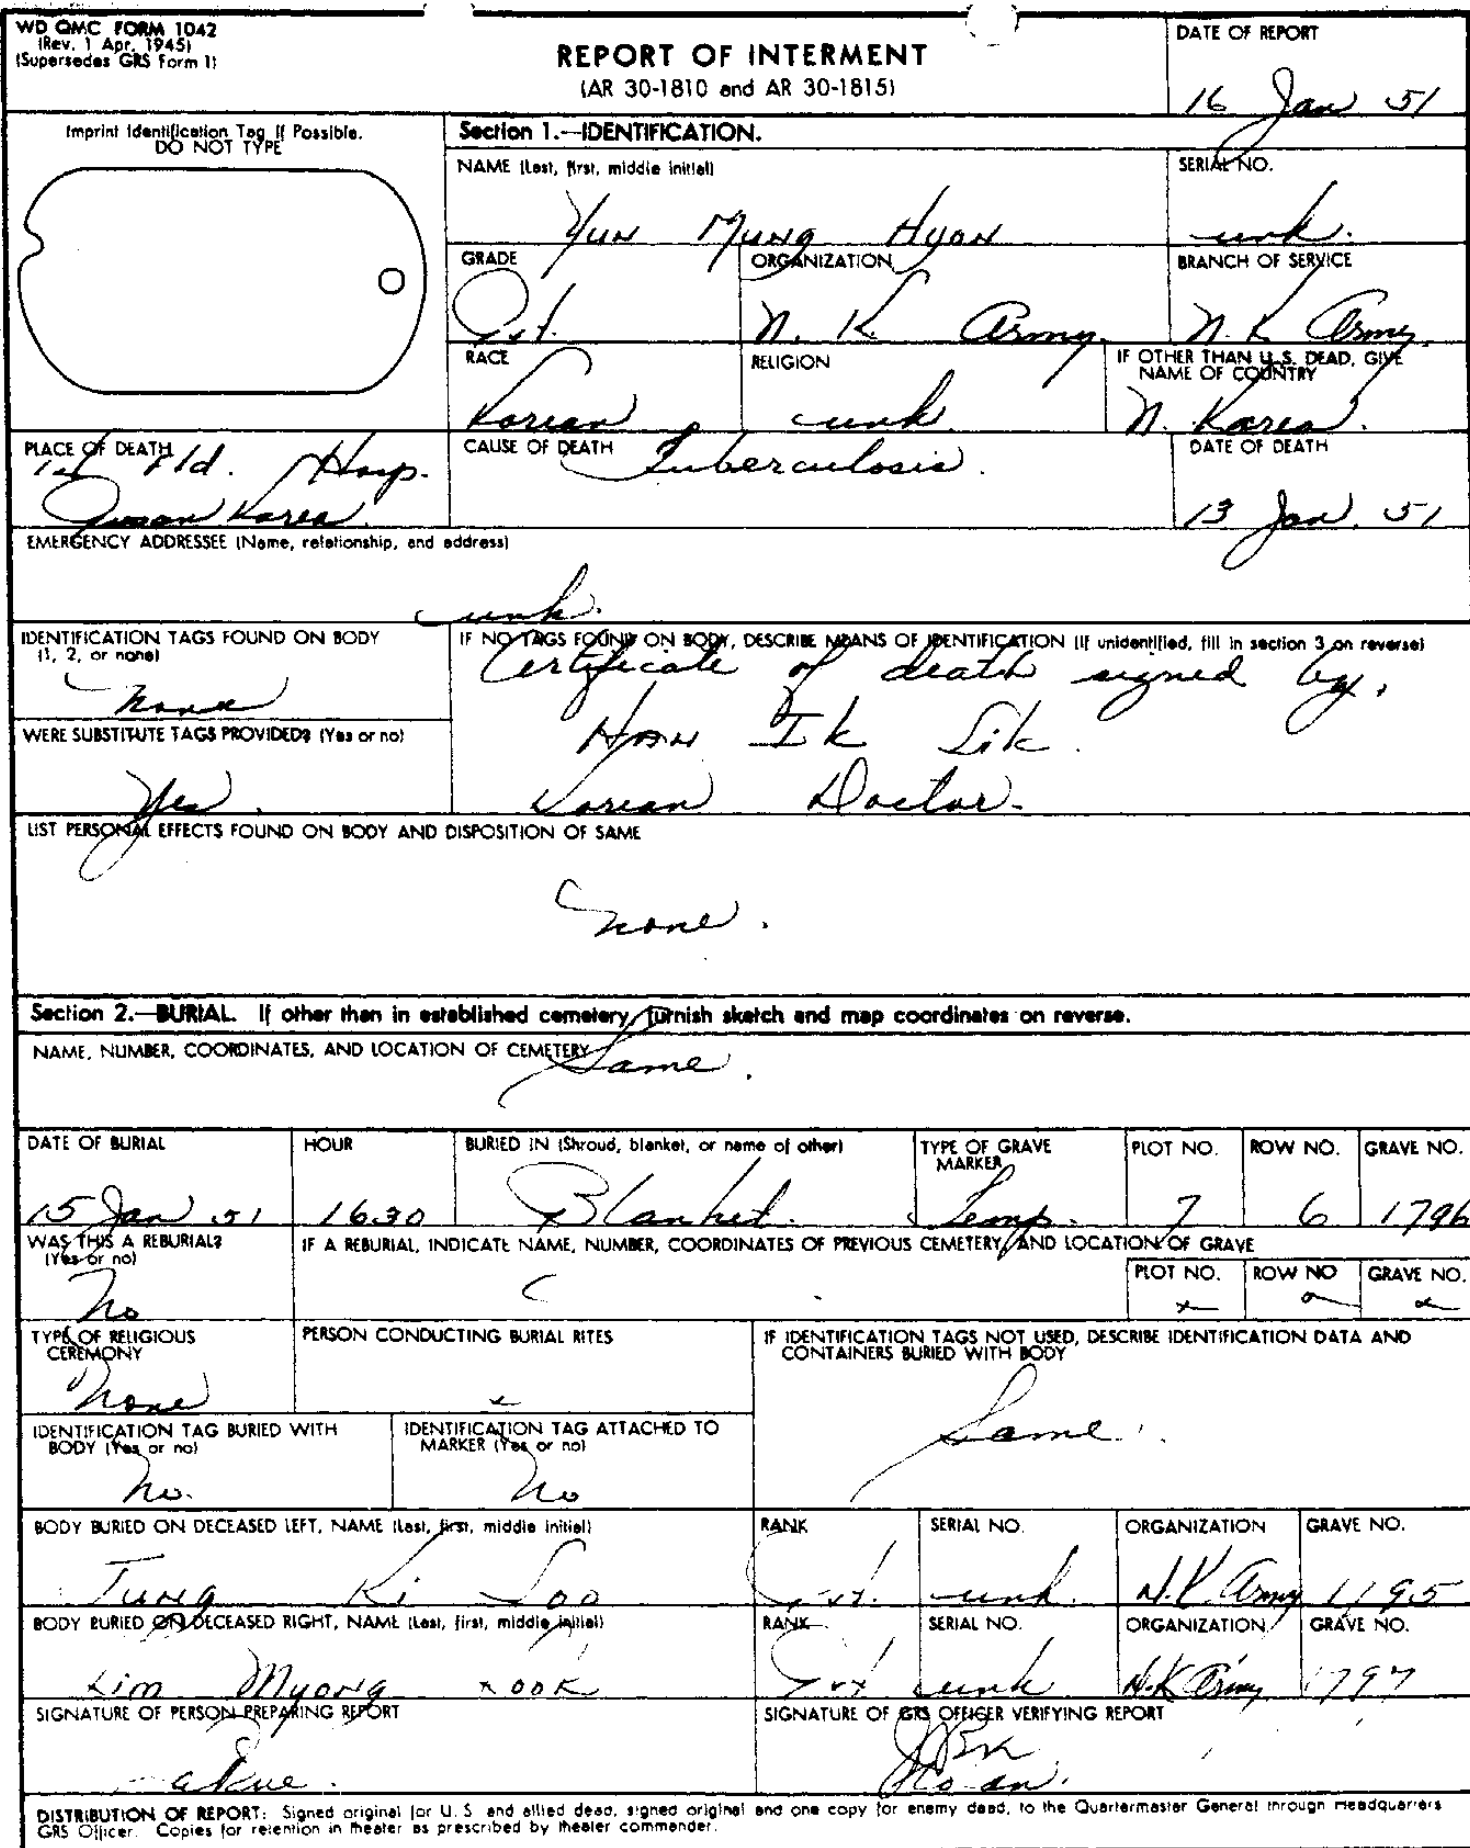 WD QMC FORM 1042
(Rev. 1 Apr. 1945)
(Supersedes GRS Form 1)
REPORT OF INTERMENT
(AR 30-1810 and AR 30-1815)
DATE OF REPORT
16 Jan 51
Imprint Identification Tag If Possible.
DO NOT TYPE
Section 1.—IDENTIFICATION.
NAME (Last, first, middle initial)
Yun Mung Hyon
SERIAL NO.
unk.
GRADE
Pvt.
ORGANIZATION
N. K. Army.
BRANCH OF SERVICE
N. K Army.
RACE
Korean
RELIGION
unk.
IF OTHER THAN U.S. DEAD, GIVE
NAME OF COUNTRY
N. Korea.
PLACE OF DEATH
Fld. Hosp.
Pusan Korea.
CAUSE OF DEATH
Tuberculosis.
DATE OF DEATH
13 Jan. 51
EMERGENCY ADDRESSEE (Name, relationship, and address)
unk.
IDENTIFICATION TAGS FOUND ON BODY
(1, 2, or none)
none
IF NO TAGS FOUND ON BODY, DESCRIBE MEANS OF IDENTIFICATION (If unidentified, fill in section 3 on reverse)
Certificate of death signed by,
HAN Ik Sik.
Korean Doctor.
WERE SUBSTITUTE TAGS PROVIDED? (Yes or no)
Yes.
LIST PERSONAL EFFECTS FOUND ON BODY AND DISPOSITION OF SAME
none.
Section 2.—BURIAL. If other than in established cemetery, furnish sketch and map coordinates on reverse.
NAME, NUMBER, COORDINATES, AND LOCATION OF CEMETERY
Same.
DATE OF BURIAL
15 Jan 51
HOUR
1630
BURIED IN (Shroud, blanket, or name of other)
Blanket.
TYPE OF GRAVE
MARKER
Temp.
PLOT NO.
7
ROW NO.
6
GRAVE NO.
1796
WAS THIS A REBURIAL?
(Yes or no)
No
IF A REBURIAL, INDICATE NAME, NUMBER, COORDINATES OF PREVIOUS CEMETERY, AND LOCATION OF GRAVE
PLOT NO.
ROW NO
GRAVE NO.
TYPE OF RELIGIOUS
CEREMONY
None
PERSON CONDUCTING BURIAL RITES
IF IDENTIFICATION TAGS NOT USED, DESCRIBE IDENTIFICATION DATA AND
CONTAINERS BURIED WITH BODY
Same.
IDENTIFICATION TAG BURIED WITH
BODY (Yes or no)
No.
IDENTIFICATION TAG ATTACHED TO
MARKER (Yes or no)
No
BODY BURIED ON DECEASED LEFT, NAME (Last, first, middle initial)
Jung Ki Soo
RANK
Pvt.
SERIAL NO.
unk.
ORGANIZATION
N.K Army
GRAVE NO.
1195
BODY BURIED ON DECEASED RIGHT, NAME (Last, first, middle initial)
Kim Myong Kook
RANK
Pvt
SERIAL NO.
unk
ORGANIZATION
N.K Army
GRAVE NO.
1797
SIGNATURE OF PERSON PREPARING REPORT
SIGNATURE OF GRS OFFICER VERIFYING REPORT
DISTRIBUTION OF REPORT: Signed original for U. S and allied dead, signed original and one copy for enemy dead, to the Quartermaster General through Headquarters
GRS Officer. Copies for retention in theater as prescribed by theater commander.